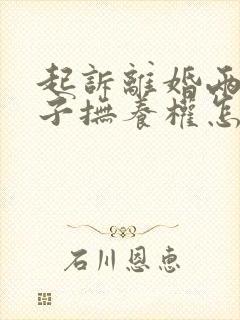 起訴離婚兩
子撫養權怎
石川恩惠